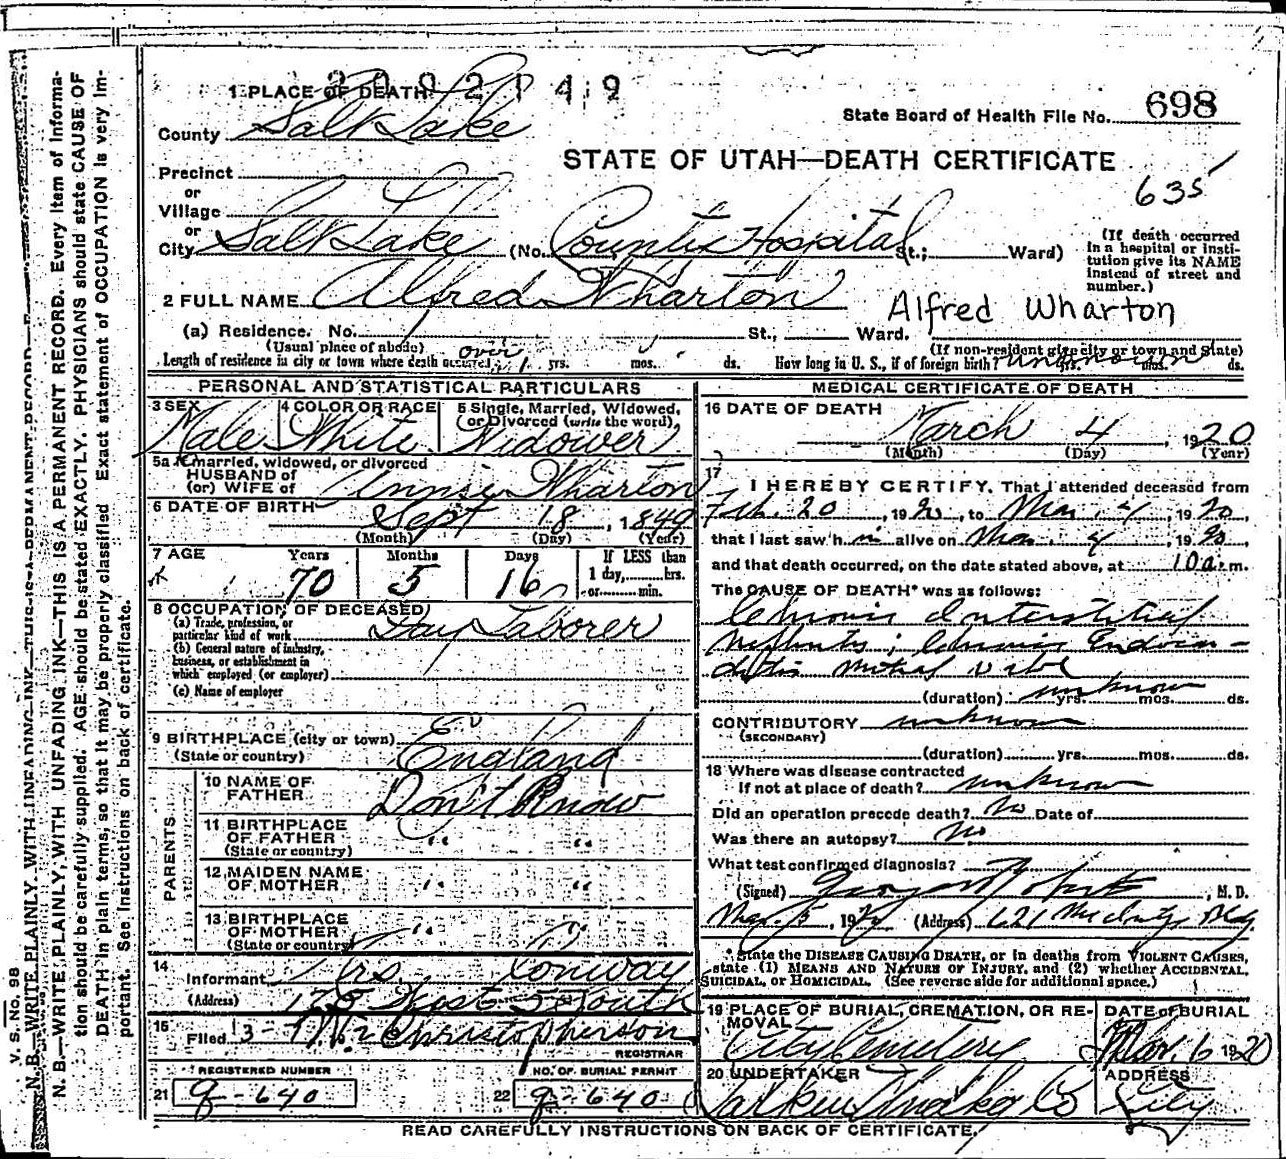 2002149
1 PLACE OF DEATH
County Salt Lake
State Board of Health File No. 698
STATE OF UTAH—DEATH CERTIFICATE
635
Precinct
or
Village
or
City Salt Lake (No. County Hospital St.; Ward)
(If death occurred in a hospital or institution give its NAME instead of street and number.)
2 FULL NAME Alfred Wharton
Alfred Wharton
(a) Residence. No. St., Ward.
(Usual place of abode)
(If non-resident give city or town and State)
Length of residence in city or town where death occurred over 1 yrs. mos. ds. How long in U. S., if of foreign birth? unknown yrs. mos. ds.
PERSONAL AND STATISTICAL PARTICULARS
3 SEX Male
4 COLOR OR RACE White
5 Single, Married, Widowed, or Divorced (write the word) Widower
5a If married, widowed, or divorced
HUSBAND of
(or) WIFE of Annie Wharton
6 DATE OF BIRTH Sept 18, 1849
(Month) (Day) (Year)
7 AGE Years Months Days If LESS than
70 5 16 1 day, hrs.
or min.
8 OCCUPATION OF DECEASED
(a) Trade, profession, or
particular kind of work Day Laborer
(b) General nature of industry,
business, or establishment in
which employed (or employer)
(c) Name of employer
9 BIRTHPLACE (city or town)
(State or country) England
PARENTS
10 NAME OF
FATHER Don't Know
11 BIRTHPLACE
OF FATHER " "
(State or country)
12 MAIDEN NAME
OF MOTHER " "
13 BIRTHPLACE
OF MOTHER " "
(State or country)
14
Informant Mrs Conway
(Address) 178 West 5 South
15
Filed 3- Christopherson
REGISTRAR
REGISTERED NUMBER
21 9-640
NO. OF BURIAL PERMIT
22 9-640
MEDICAL CERTIFICATE OF DEATH
16 DATE OF DEATH
March 4, 1920
(Month) (Day) (Year)
17
I HEREBY CERTIFY, That I attended deceased from
Feb. 20, 1920, to Mar. 4, 1920,
that I last saw him alive on Mar. 4, 1920,
and that death occurred, on the date stated above, at 10 a.m.
The CAUSE OF DEATH* was as follows:
Chronic Interstitial
Nephritis; Chronic Endocar-
ditis mitral
(duration) unknown yrs. mos. ds.
CONTRIBUTORY unknown
(SECONDARY)
(duration) yrs. mos. ds.
18 Where was disease contracted
If not at place of death? unknown
Did an operation precede death? No Date of
Was there an autopsy? No.
What test confirmed diagnosis?
(Signed) George Roberts, M. D.
Mar. 5, 1920 (Address) 621 McIntyre Bldg
*State the DISEASE CAUSING DEATH, or in deaths from VIOLENT CAUSES,
state (1) MEANS AND NATURE OF INJURY, and (2) whether ACCIDENTAL,
SUICIDAL, or HOMICIDAL. (See reverse side for additional space.)
19 PLACE OF BURIAL, CREMATION, OR RE-
MOVAL
City Cemetery
DATE OF BURIAL
Mar. 6 1920
20 UNDERTAKER
Co
ADDRESS
City
READ CAREFULLY INSTRUCTIONS ON BACK OF CERTIFICATE.
V. S. No. 98
N. B.—WRITE PLAINLY, WITH UNFADING INK—THIS IS A PERMANENT RECORD. Every item of informa-
tion should be carefully supplied. AGE should be stated EXACTLY. PHYSICIANS should state CAUSE OF
DEATH in plain terms, so that it may be properly classified. Exact statement of OCCUPATION is very im-
portant. See instructions on back of certificate.